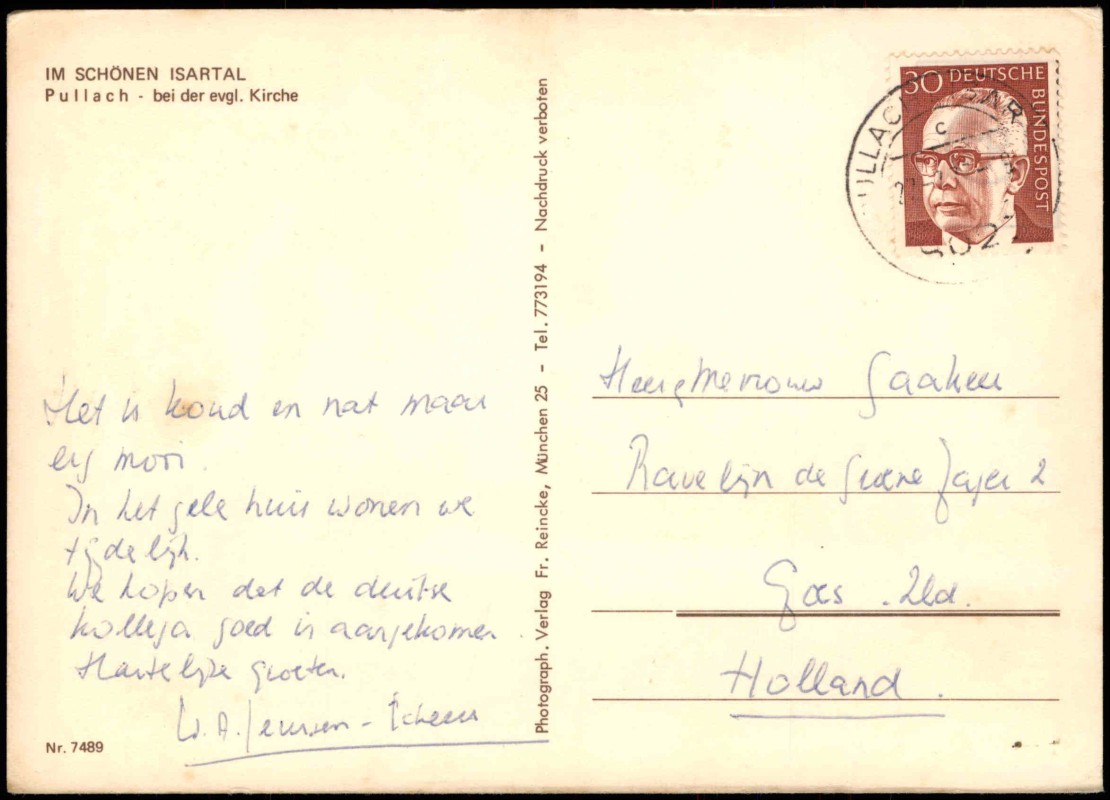 IM SCHÖNEN ISARTAL
Pullach - bei der evgl. Kirche
Het is koud en nat maar
erg mooi.
In het gele huis wonen we
tijdelijk.
We hopen dat de deutse
kollega goed is aangekomen.
Hartelijke groeten.
W.A.
Nr. 7489
Photograph. Verlag Fr. Reincke, München 25 - Tel. 773194 - Nachdruck verboten
30 DEUTSCHE
BUNDESPOST
ULLACH ISAR
c
802
Mevrouw
Ravelijn de Groene Jager 2
Goes. Zld.
Holland.